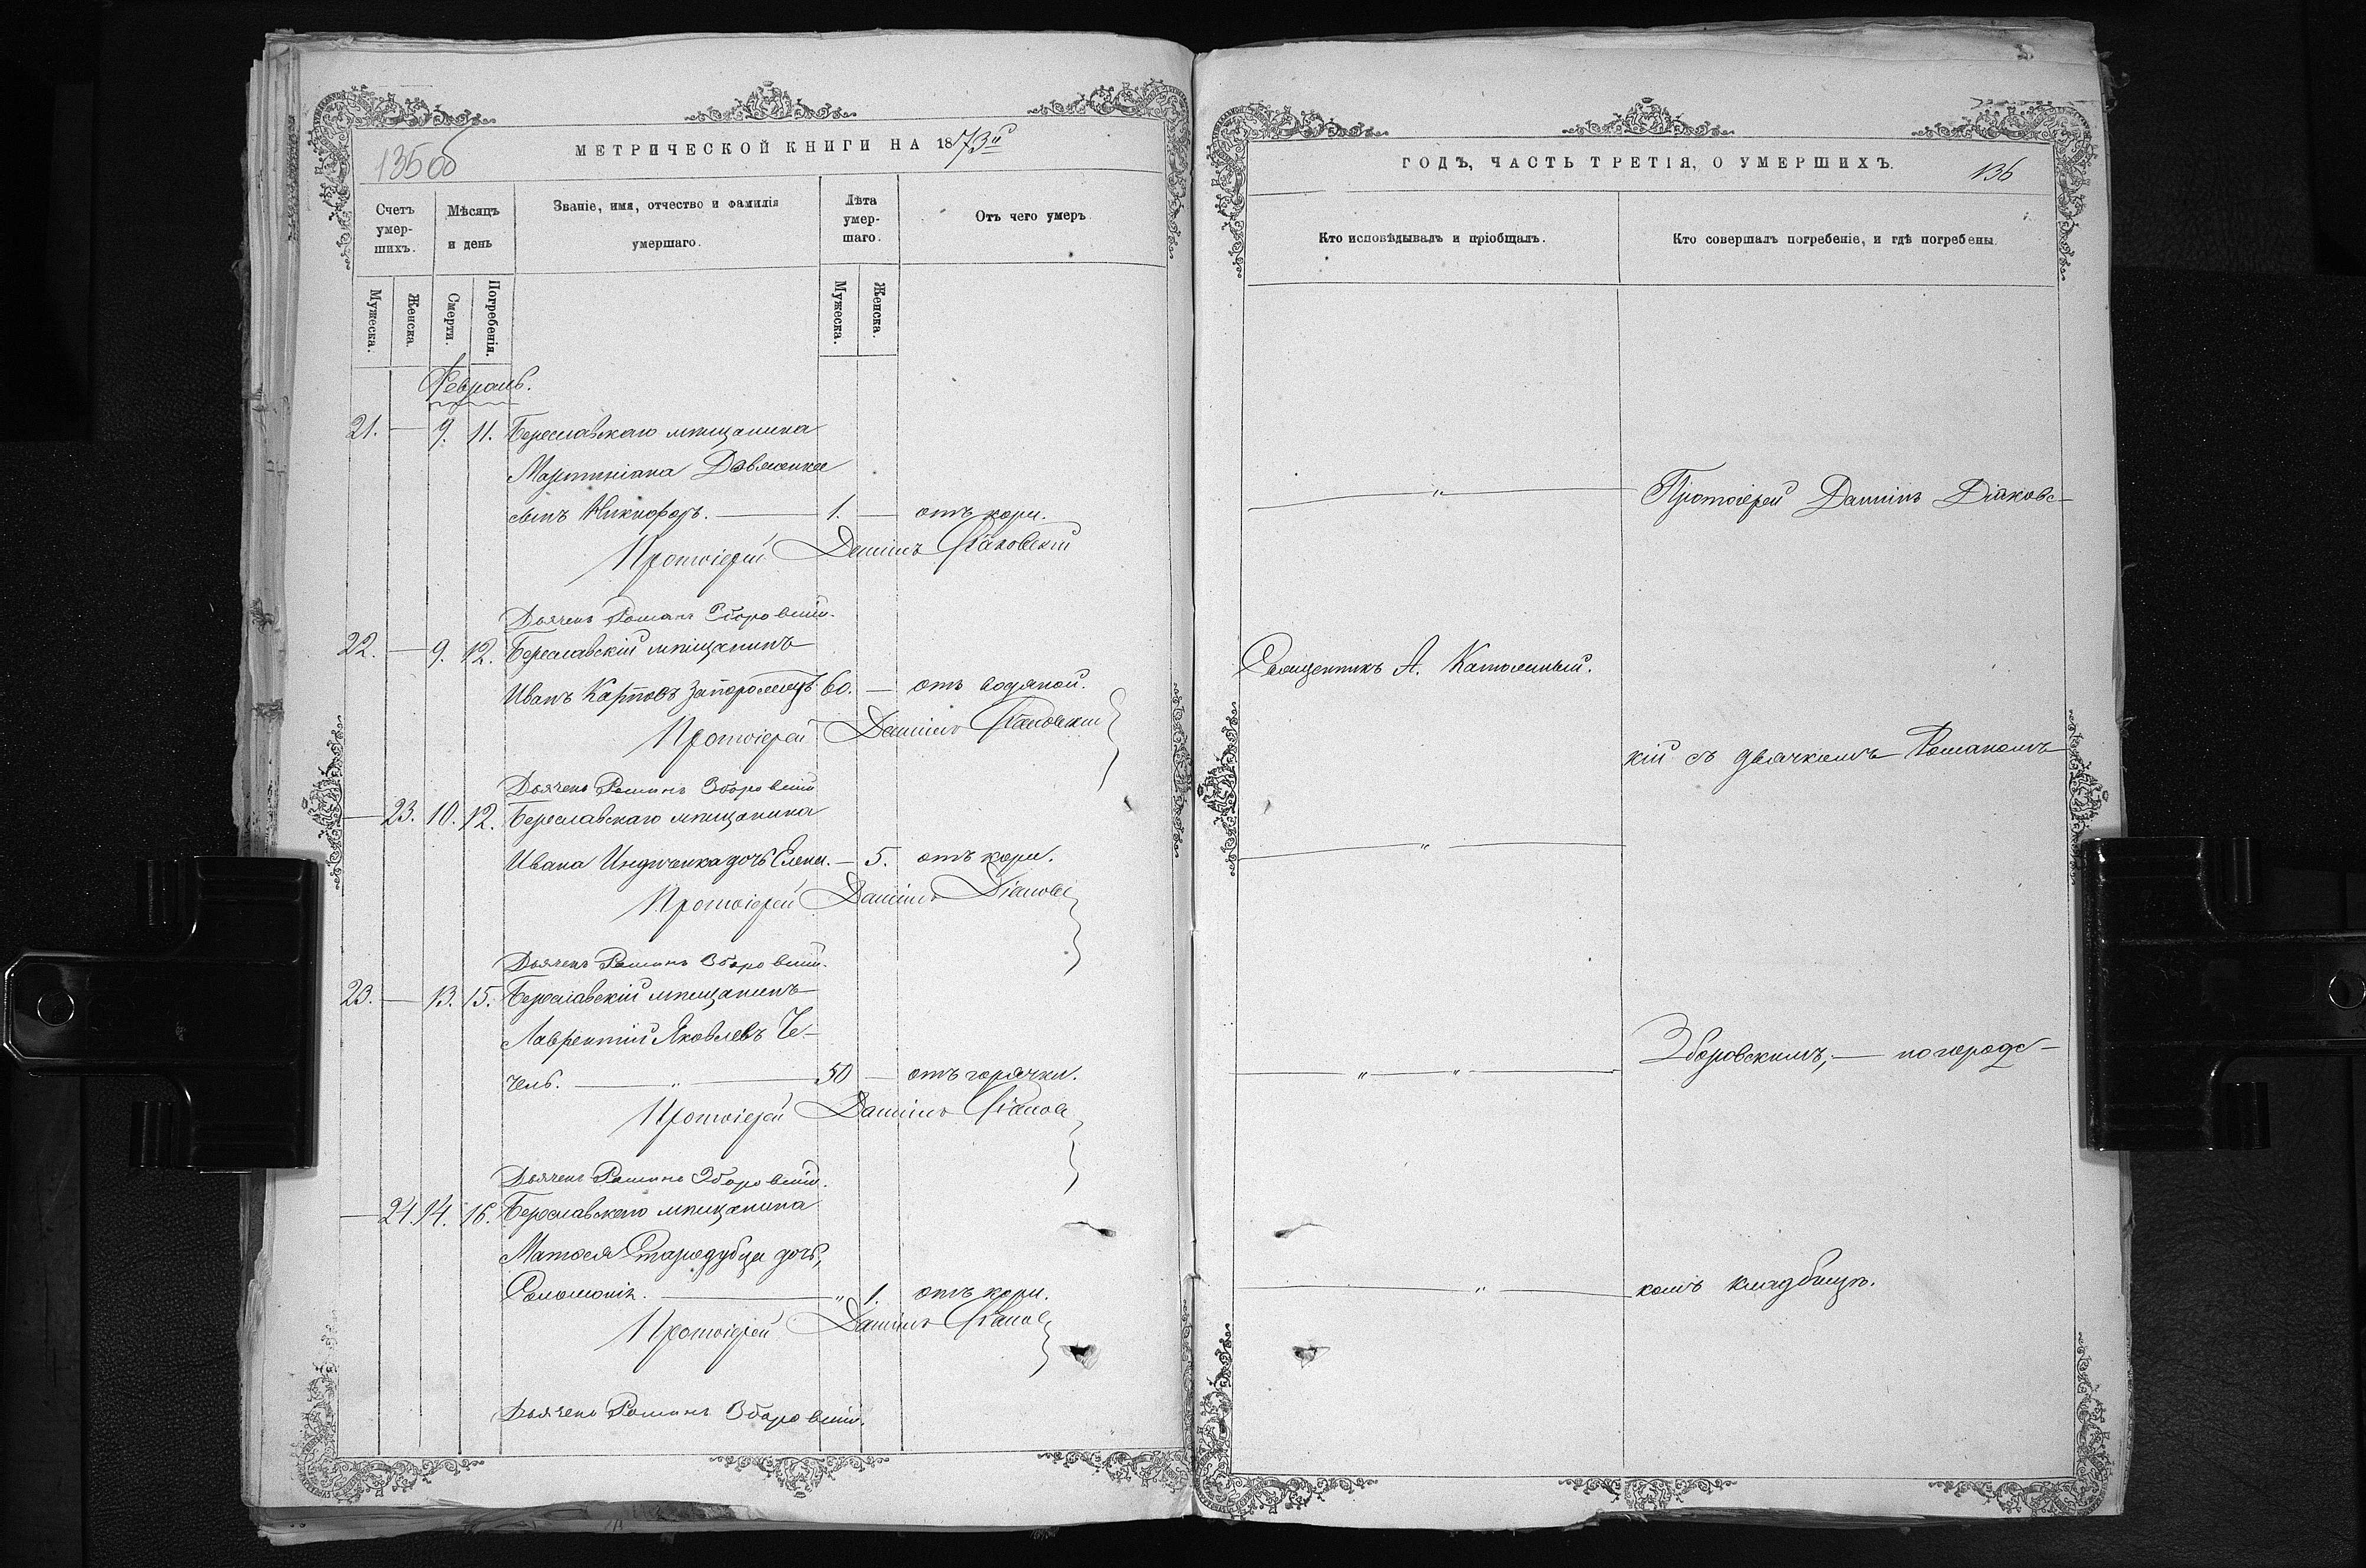 135 об
МЕТРИЧЕСКОЙ КНИГИ НА 1873й
Счетъ умер-шихъ.
Мѣсяцъ и день
Званіе, имя, отчество и фамилія умершаго.
Лѣта умер-шаго.
Отъ чего умеръ.
Мужеска.
Женска.
Смерти.
Погребенія.
Мужеска.
Женска.
Февраль.
21. — 9. 11. Береславскаго мѣщанина
Мартиніана Довженка
сынъ Никифоръ. — 1. — отъ кори.
Протоіерей Даніилъ Діаковскій
Дьячекъ Романъ Зборовскій.
22. — 9. 12. Береславскій мѣщанинъ
Иванъ Карповъ Запорожецъ 60. — отъ водяной.
Протоіерей Даніилъ Діаковскій
Дьячекъ Романъ Зборовскій
— 23. 10. 12. Береславскаго мѣщанина
Ивана Индиченка дочь Елена. — 5. отъ кори.
Протоіерей Даніилъ Діаковс
Дьячекъ Романъ Зборовскій.
23. — 13. 15. Береславскій мѣщанинъ
Лаврентій Яковлевъ Че-
чель. — „ — 50 — отъ горячки.
Протоіерей Даніилъ Діаков
Дьячекъ Романъ Зборовскій.
— 24. 14. 16. Береславскаго мѣщанина
Матвея Стародубца дочь,
Соломонія. — „ 1. отъ кори.
Протоіерей Даніилъ Діаков
Дьячекъ Романъ Зборовскій.
ГОДЪ, ЧАСТЬ ТРЕТІЯ, О УМЕРШИХЪ.
136
Кто исповѣдывалъ и пріобщалъ.
Кто совершалъ погребеніе, и гдѣ погребены.
— „ — Протоіерей Даніилъ Діаковс-
Священникъ А.
кій съ дьячкомъ Романомъ
— „ —
Зборовскимъ; — на городс-
— „ — „ —
— „ — комъ кладбищѣ.